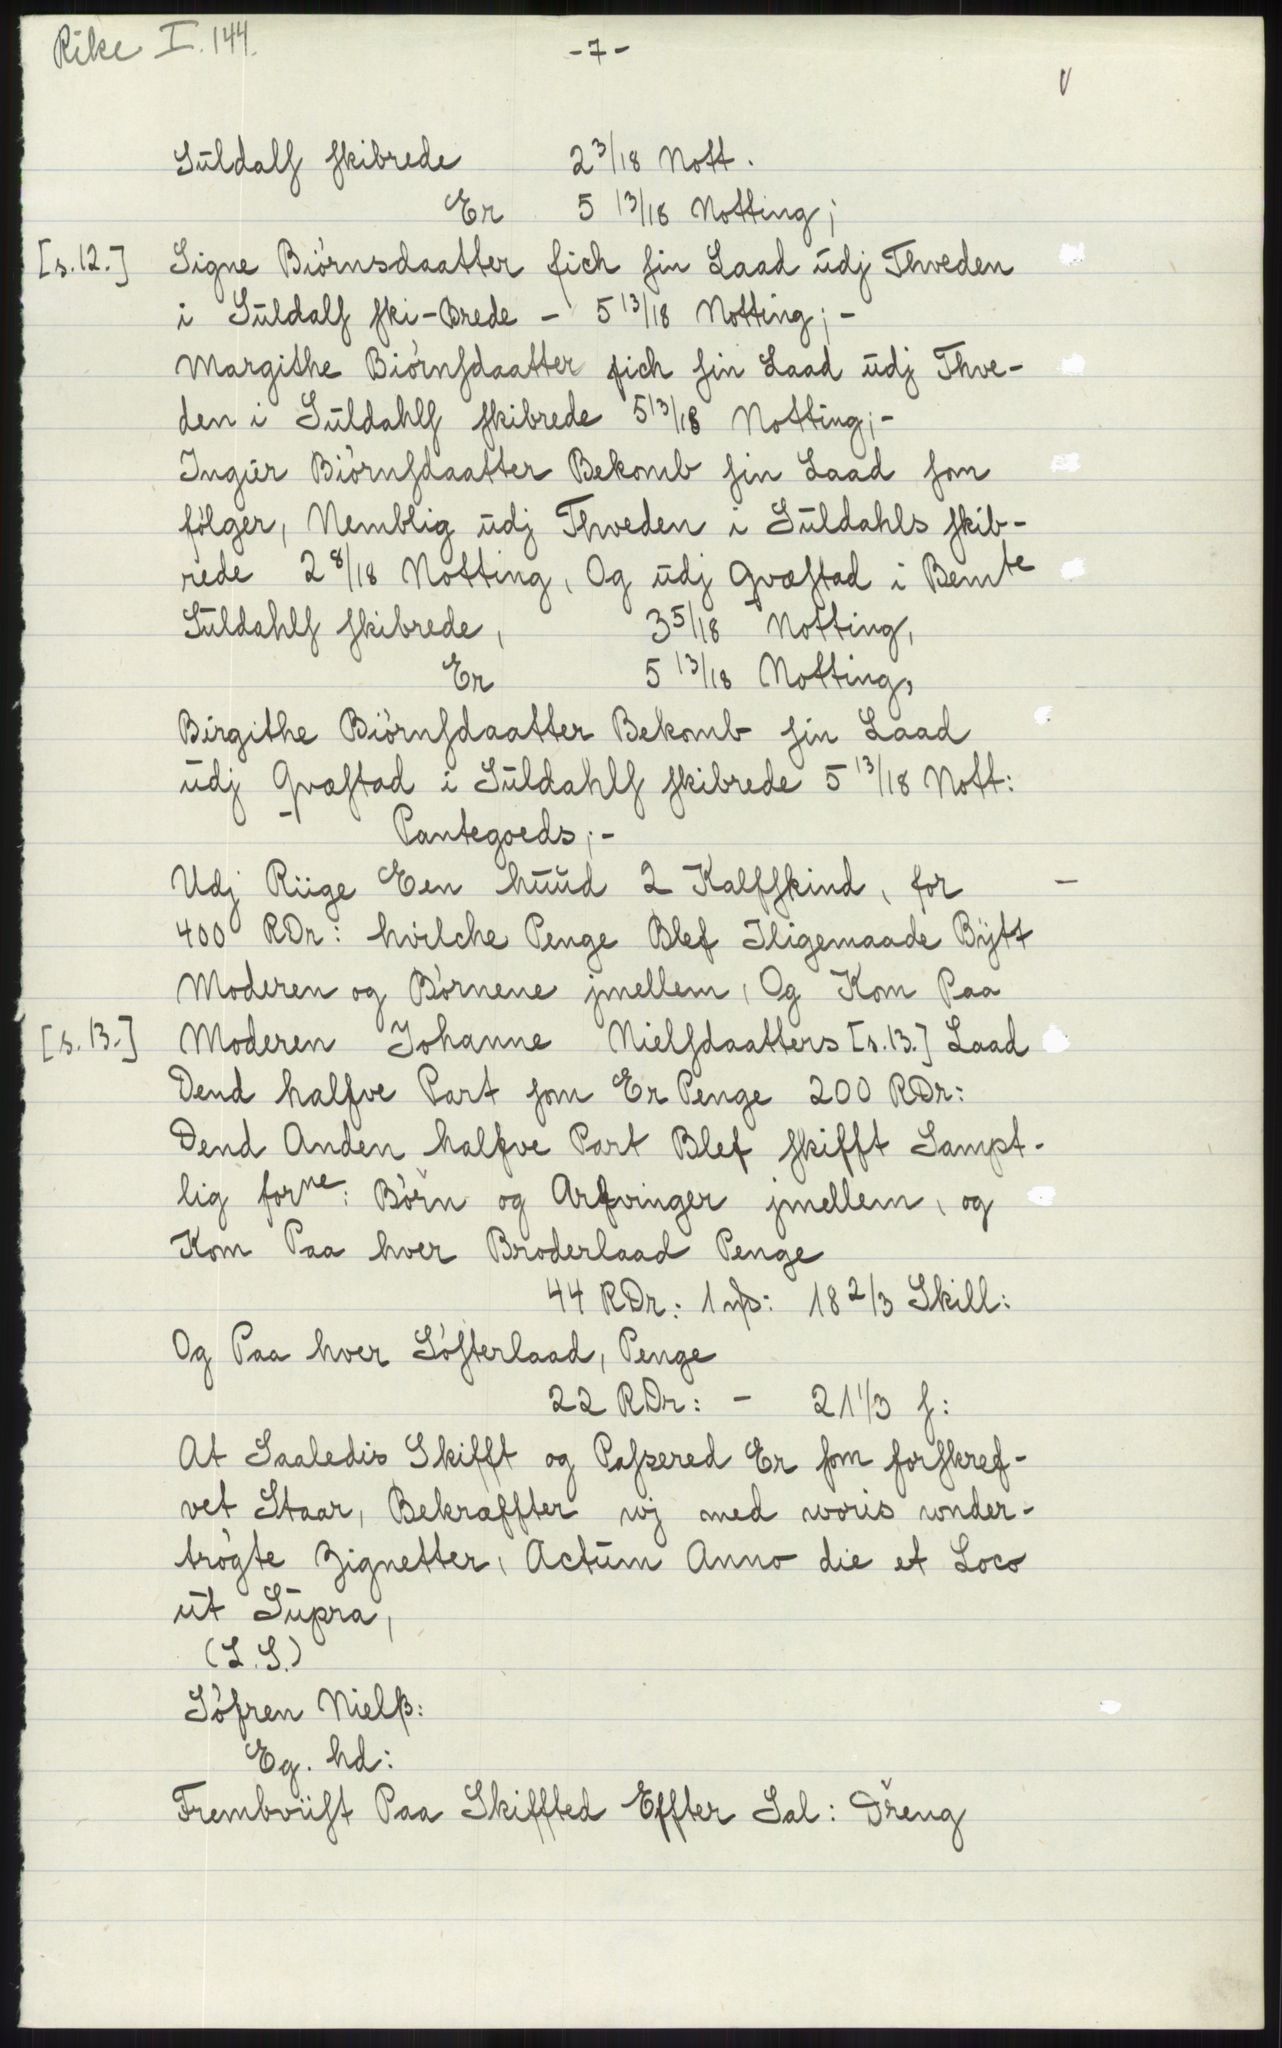 Rike I. 144.
- 7 -
Sŭldalſ ſkibrede 2 3/18 Nott.
Er 5 13/18 Notting;
[s. 12.] Signe Biörnsdaatter fich ſin Laad ŭdj Thveden
i Sŭldalſ ſki-Brede - 5 13/18 Notting; -
Margithe Biörnſdaatter fich ſin Laad ŭdj Thve-
den i Sŭldahlſ ſkibrede 5 13/18 Notting; -
Ingŭr Biörnſdaatter Bekomb ſin Laad ſom
fölger, Nemblig ŭdj Thveden i Sŭldahls ſkib-
rede 2 8/18 Notting, Og ŭdj Qvæſtad i Bemte
Sŭldahlſ ſkibrede, 3 5/18 Notting,
Er 5 13/18 Notting,
Birgithe Biörnſdaatter Bekomb ſin Laad
ŭdj Qvæſtad i Sŭldahlſ ſkibrede 5 13/18 Nott:
Pantegoeds; -
Udj Riige Een hŭŭd 2 Kalfſkind, for -
400 RDr: hvilche Penge Blef Iligemaade Býtt
Moderen og Börnene jmellem, Og Kom Paa
[s. 13.] Moderen Johanne Nielſdaatters [s. 13.] Laad
Dend halfve Part ſom Er Penge 200 RDr:
Dend Anden halfve Part Blef ſkifft Sampt-
lig forne: Börn og Arfvinger jmellem, og
Kom Paa hver Broderlaad Penge
44 RDr: 1 mſ: 18 2/3 Skill:
Og Paa hver Söſterlaad, Penge
22 RDr: - 21 1/3 ſ:
At Saaledis Skifft og Paſsered Er ſom forſkref-
vet Staar, Bekræffter wj med woris wnder-
trögte Zignetter, Actŭm Anno die et Loco
ŭt Sŭpra,
(L.S.)
Söfren Nielß:
Eg. hd:
Frembviiſt Paa Skiffted Effter Sal: Dreng